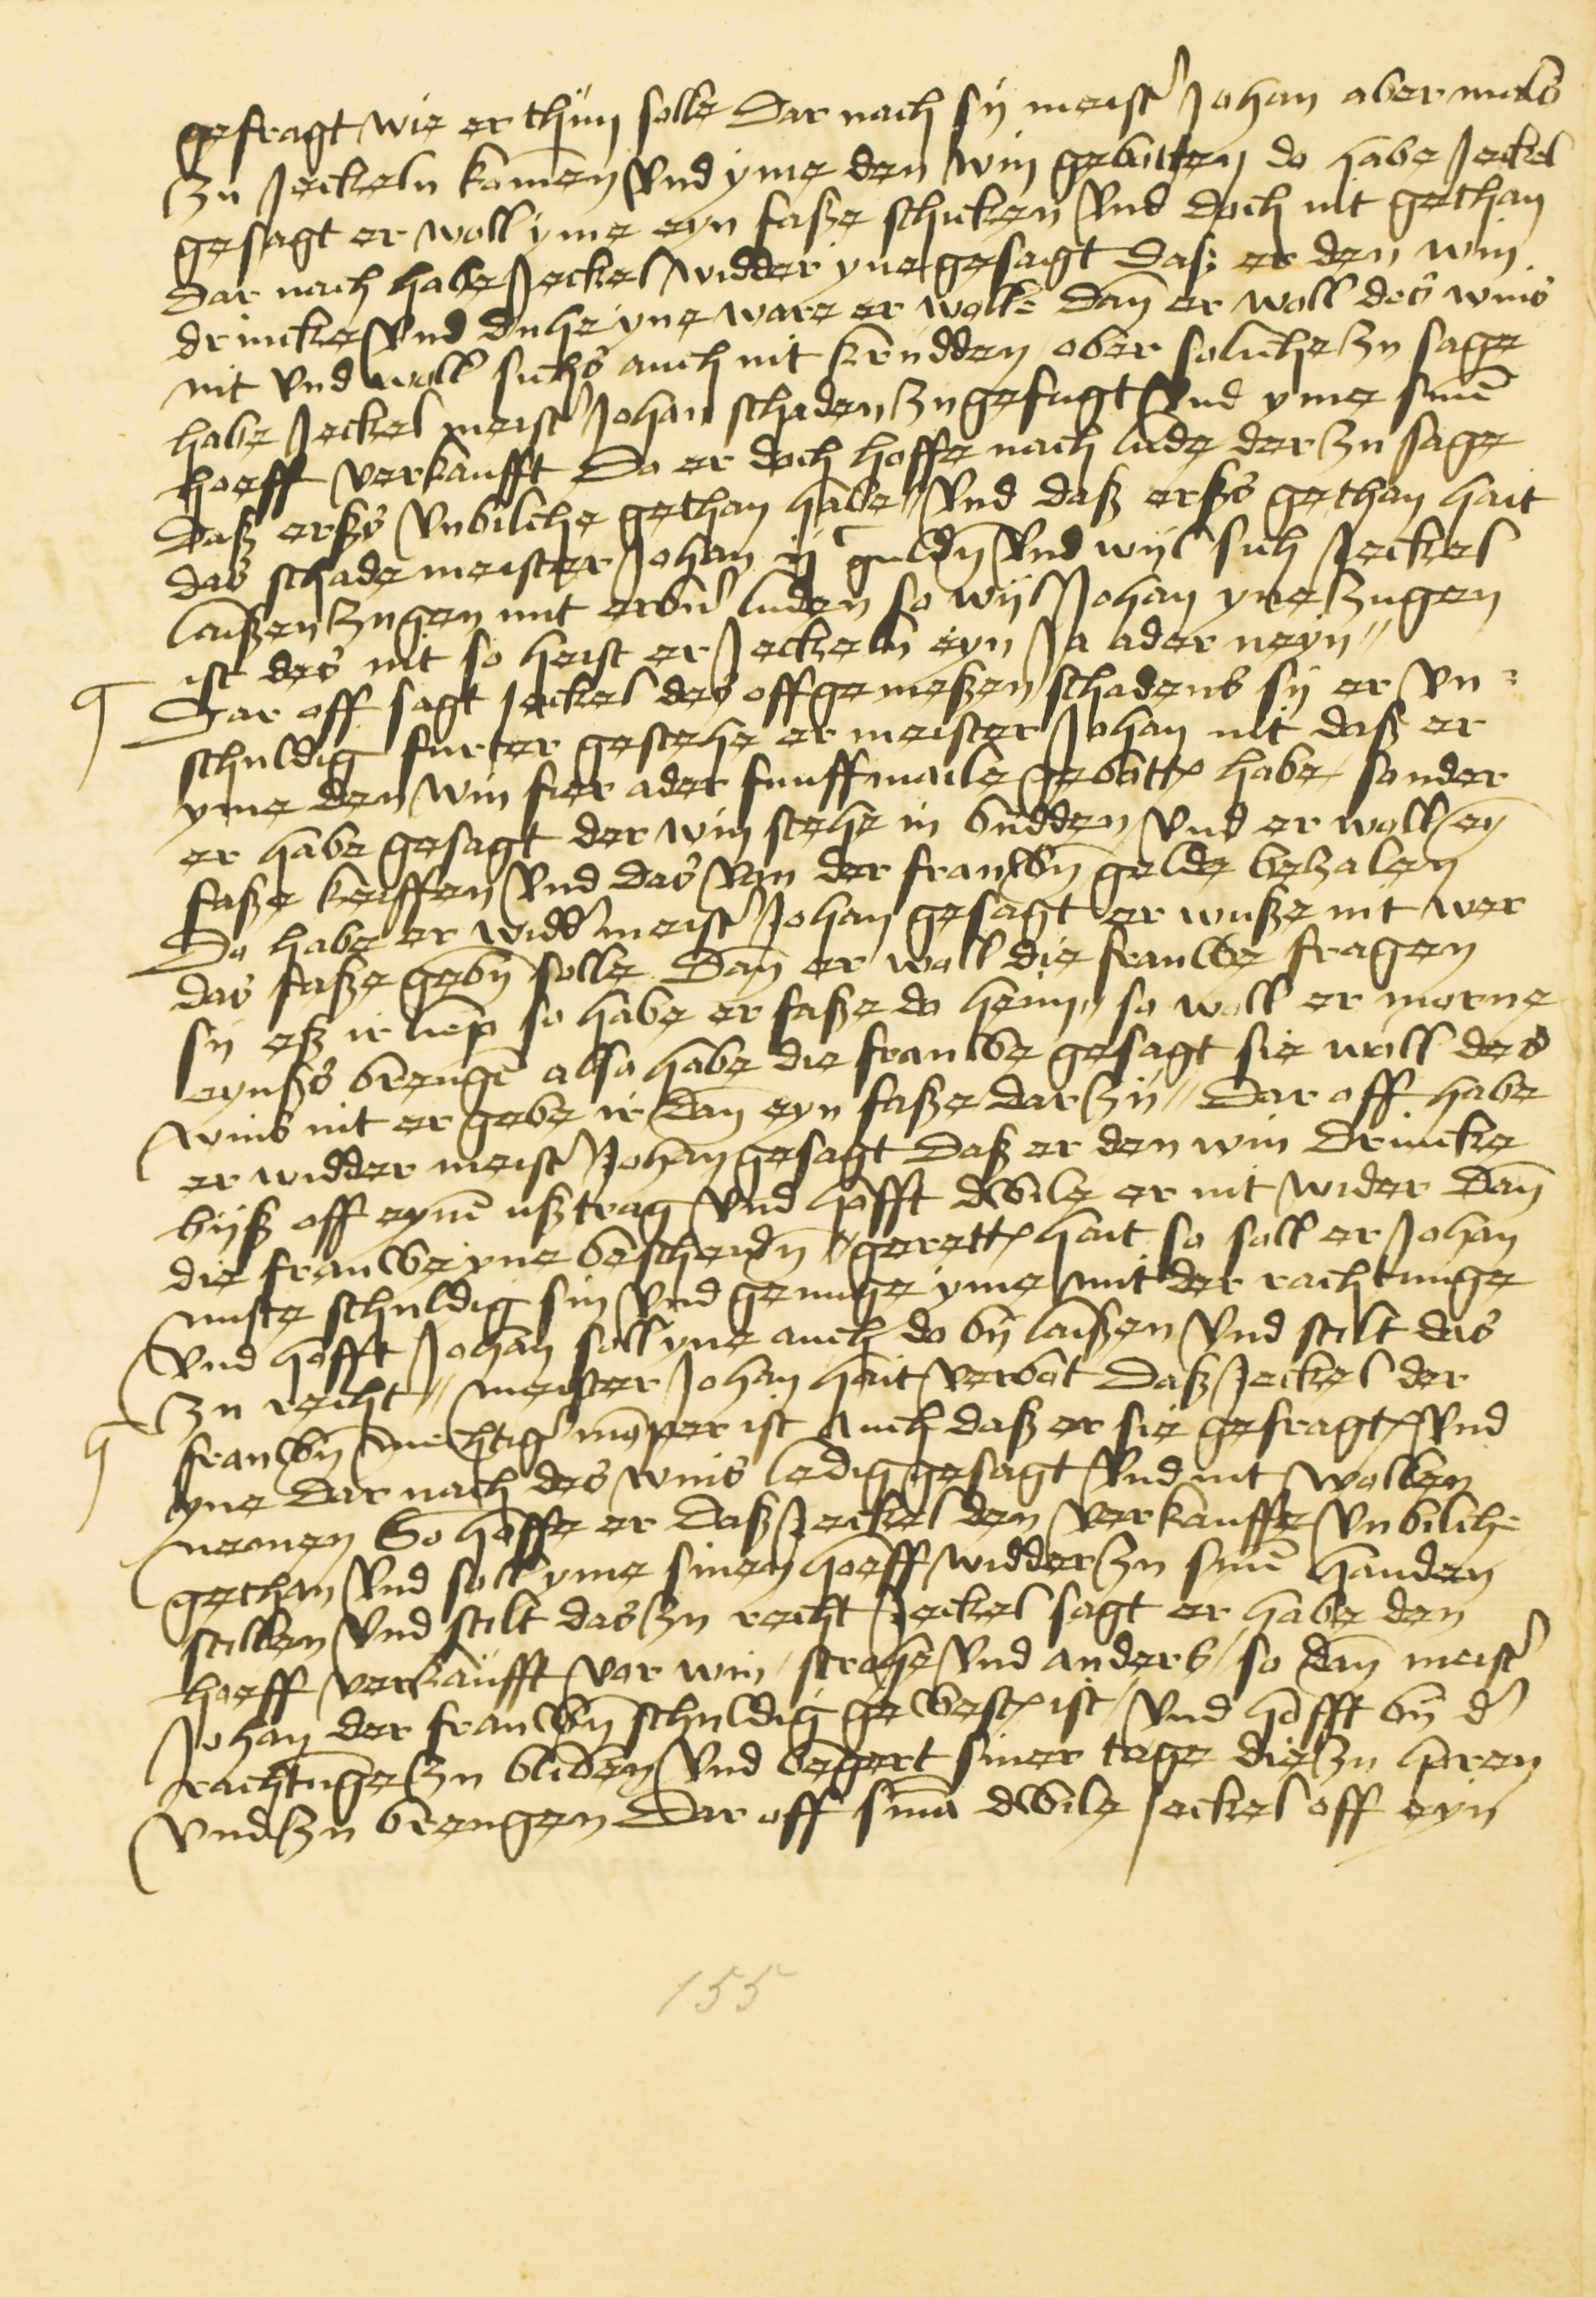 gefragt wie er thun solle Dar nach sij meist' Johan abermals
zu Jeckeln komen Vnd yme den win gebotten do habe Jeckel
gesagt er woll yme eyn faße schicken Vnd doch nit gethan
Dar nach habe Jeckel widder yne gesagt Daß er den win
drincke Vnd duhe yne ware er wolle Dan er woll des wins
nit Vnd woll sichs auch nit krudden ober soliche zu sage
habe Jeckel meist' Johan schaden zu gefugt Vnd yme sine
hoeff verkaufft Do er doch hoffe nach lude der zu sage
Daß erßs Vnbilche gethan habe // Vnd daß erßs gethan hait
das schade meister Johan ij guldn Vnd wijl sich Jeckel
laißen zugen mit erbn luden so wijl Johan yne zugen
ist des nit so heist er Jeckeln eyn Ja ader neyn //
Dar off sagt Jeckel des offgemeßen schadens sij er vn=
schuldig furter gestehe er meister Johan nit daß er
yme den win fier ader funffmaile gebott habe / sonder
er habe gesagt der win stehe in budden Vnd er woll eyn
faße keiffen Vnd das von der frauwn gelde bezalen
Do habe er widd' meist' Johan gesagt er wuße nit wer
das faße gebn solle Dan er woll die frauwe fragen
sij eß ir liep so habe er faße do heim // so woll er morne
eynßs brengen also habe die frauwe gesagt sie woll des
wins nit er gebe ir dan eyn faße dar zu // Dar off habe
er widder meist' Johan gesagt Daß er den win drincke
byß off eyne ußtrag Vnd hofft dwile er nit wider Dan
die frauwe yne bescheidn gerett hait so soll er Johan
nuste schuldig sin Vnd genuge yme mit der rachtunge
Vnd hofft Johan soll yne auch do by laißen Vnd stilt das
zu recht // meister Johan hait verbot Daß Jeckel der
frauwn mechtig' momper ist Auch daß er sie gefragt Vnd
yne dar nach des wins ledig gesagt Vnd nit wollen
nemen So hoffe er Daß Jeckel den verkauffe Vnbilch
gethan Vnd soll yme sinen hoeff widder zu sine handen
stillen Vnd stilt das zu recht Jeckel sagt er habe den
hoeff verkaufft vor win / strohe Vnd anders / so dan meist'
Johan der frauwn schuldig gewest ist / Vnd hofft by d'
rachtunge zu bliben Vnd begert siner tage die zu horen
Vnd zu brengen Dar off sma dwile Jeckel off eyn
155